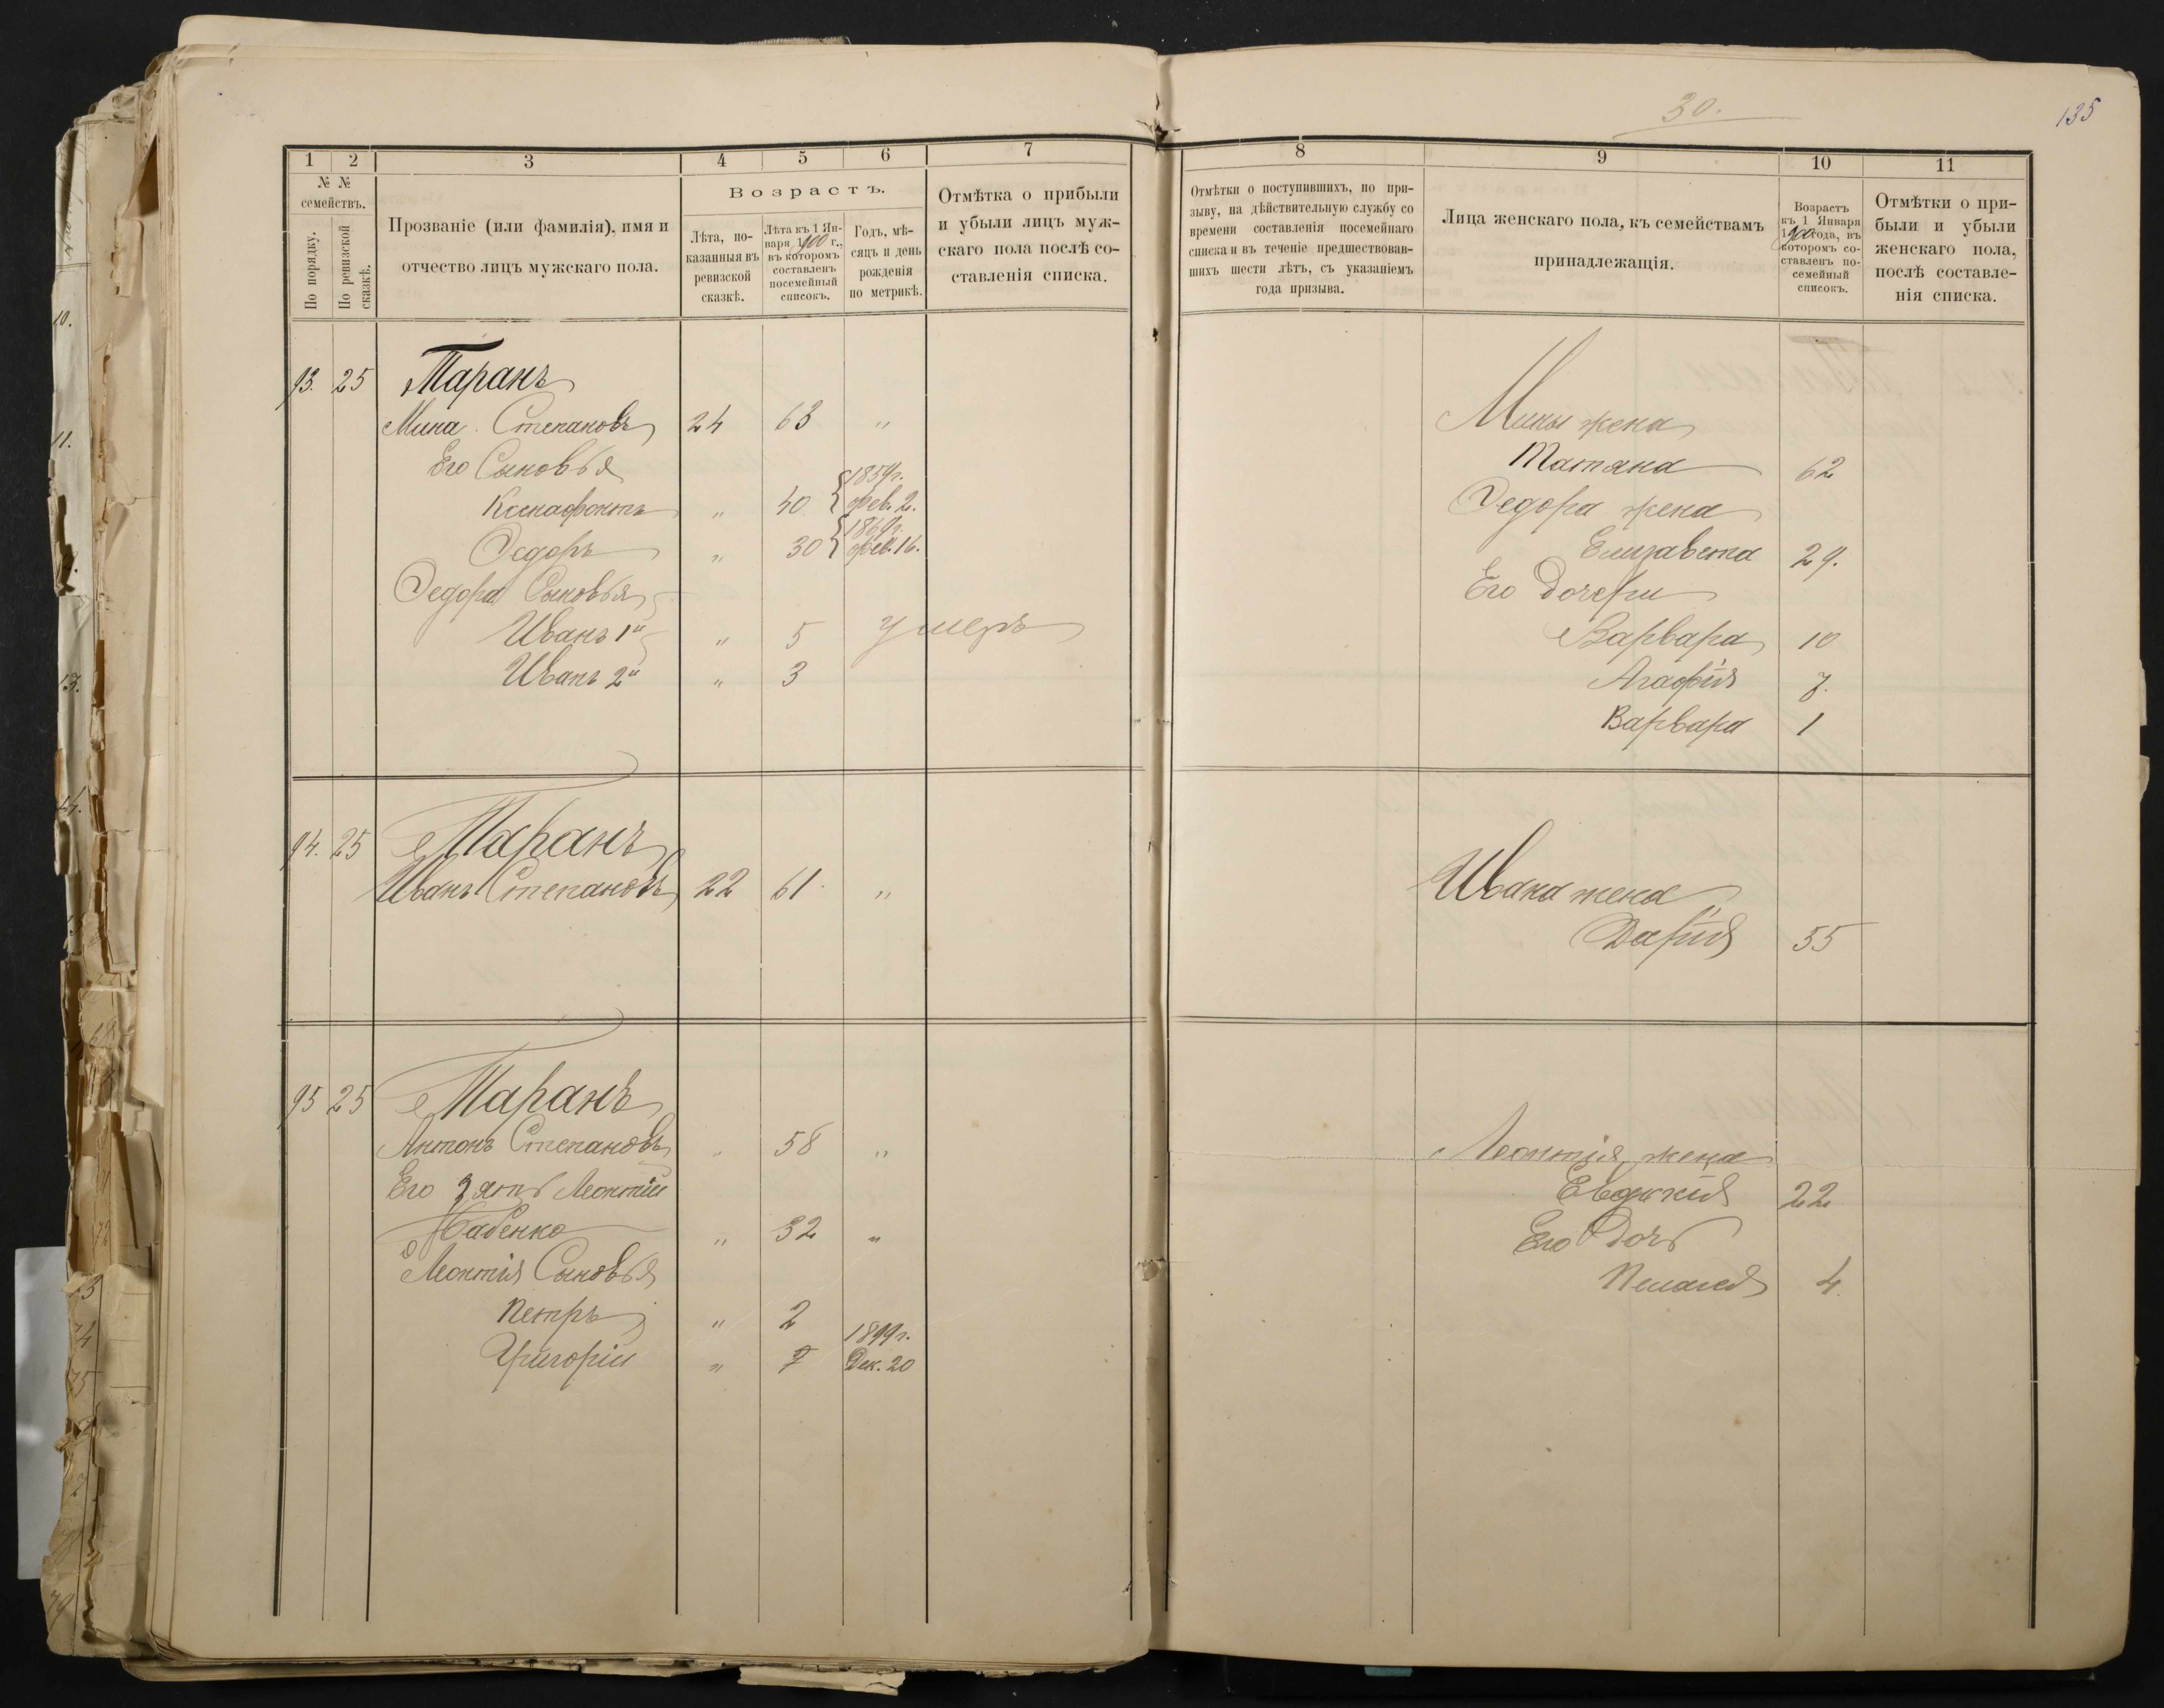 30.
135
1 2 3 4 5 6 7
№ №
семействъ.
По порядку.
По ревизской
сказкѣ.
Прозваніе (или фамилія), имя и
отчество лицъ мужскаго пола.
Возрастъ.
Лѣта, по-
казанныя въ
ревизской
сказкѣ.
Лѣта къ 1 Ян-
варя 1900 г.,
въ которомъ
составленъ
посемейный
списокъ.
Годъ, мѣ-
сяцъ и день
рожденія
по метрикѣ.
Отмѣтка о прибыли
и убыли лицъ муж-
скаго пола послѣ со-
ставленія списка.
93. 25 Таранъ
Мина Степановъ 24 63 „
Его Сыновья
Ксенофонтъ „ 40 { 1859г.
фев. 2.
Федоръ „ 30 { 1869г.
фев. 16.
Федора Сыновья
Иванъ 1й „ 5 умеръ
Иванъ 2й „ 3
94. 25 Таранъ
Иванъ Степановъ 22 61 „
95 25 Таранъ
Антонъ Степановъ „ 58 „
Его Зять Леонтій
Бабенко „ 32 „
Леонтія Сыновья
Петръ „ 2
Григорій „ 1899г.
Дек. 20
8 9 10 11
Отмѣтки о поступившихъ, по при-
зыву, на дѣйствительную службу со
времени составленія посемейнаго
списка и въ теченіе предшествовав-
шихъ шести лѣтъ, съ указаніемъ
года призыва.
Лица женскаго пола, къ семействамъ
принадлежащія.
Возрастъ
къ 1 Января
1900 года, въ
которомъ со-
ставленъ по-
семейный
списокъ.
Отмѣтки о при-
были и убыли
женскаго пола,
послѣ составле-
нія списка.
Мины жена
Татяна 62
Федора жена
Елизавета 29.
Его Дочери
Варвара 10
Агафія 7.
Варвара 1
Ивана жена
Дарія 55
Леонтія жена
Евдокія 22
Его Дочь
Пелагея 4.